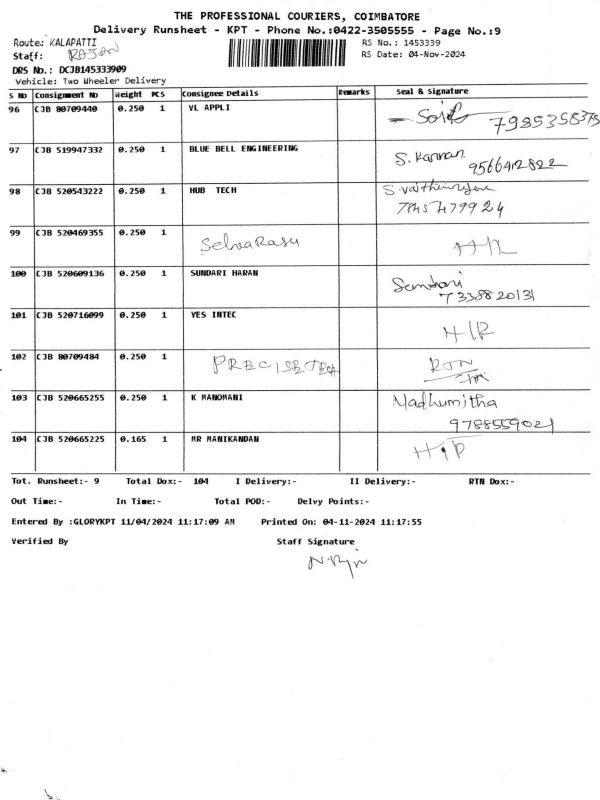 THE PROFESSIONAL COURIERS, COIMBATORE
Delivery Runsheet - KPT - Phone No.:0422-3505555 - Page No.:9
Route: KALAPATTI
RS No.: 1453339
Staff: RAJAN
RS Date: 04-Nov-2024
DRS No.: DCJB145333909
Vehicle: Two Wheeler Delivery
S No Consignment No Weight PCS Consignee Details Remarks Seal & Signature
96 CJB 80709440 0.250 1 VL APPLI
97 CJB 519947332 0.250 1 BLUE BELL ENGINEERING S. Kannan
9566412822
98 CJB 520543222 0.250 1 HUB TECH
7845479924
99 CJB 520469355 0.250 1 Selvarasu
100 CJB 520609136 0.250 1 SUNDARI HARAN
7338820131
101 CJB 520716099 0.250 1 YES INTEC
102 CJB 80709484 0.250 1 PRECISETECH RTN
103 CJB 520665255 0.250 1 K MANOMANI Madhumitha
9788559021
104 CJB 520665225 0.165 1 MR MANIKANDAN
Tot. Runsheet:- 9 Total Dox:- 104 I Delivery:- II Delivery:- RTN Dox:-
Out Time:- In Time:- Total POD:- Delvy Points:-
Entered By :GLORYKPT 11/04/2024 11:17:09 AM Printed On: 04-11-2024 11:17:55
Verified By Staff Signature